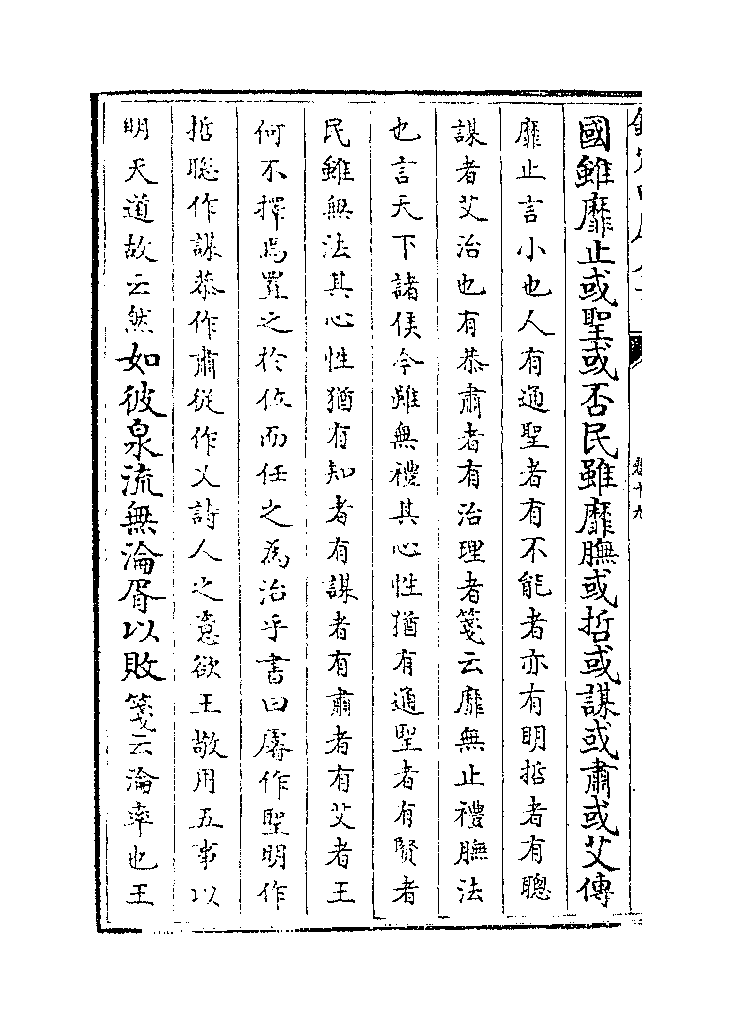 國雖靡止或聖或否民雖靡膴或哲或謀或肅或艾傳
靡止言小也人有通聖者有不能者亦有明哲者有聰
謀者艾治也有恭肅者有治理者箋云靡無止禮膴法
也言天下諸侯今雖無禮其心性猶有通聖者有賢者
民雖無法其心性猶有知者有謀者有肅者有艾者王
何不擇焉置之於位而任之為治乎書曰睿作聖明作
哲聰作謀恭作肅從作乂詩人之意欲王敬用五事以
明天道故云然如彼泉流無淪胥以敗箋云淪率也王
卷十九